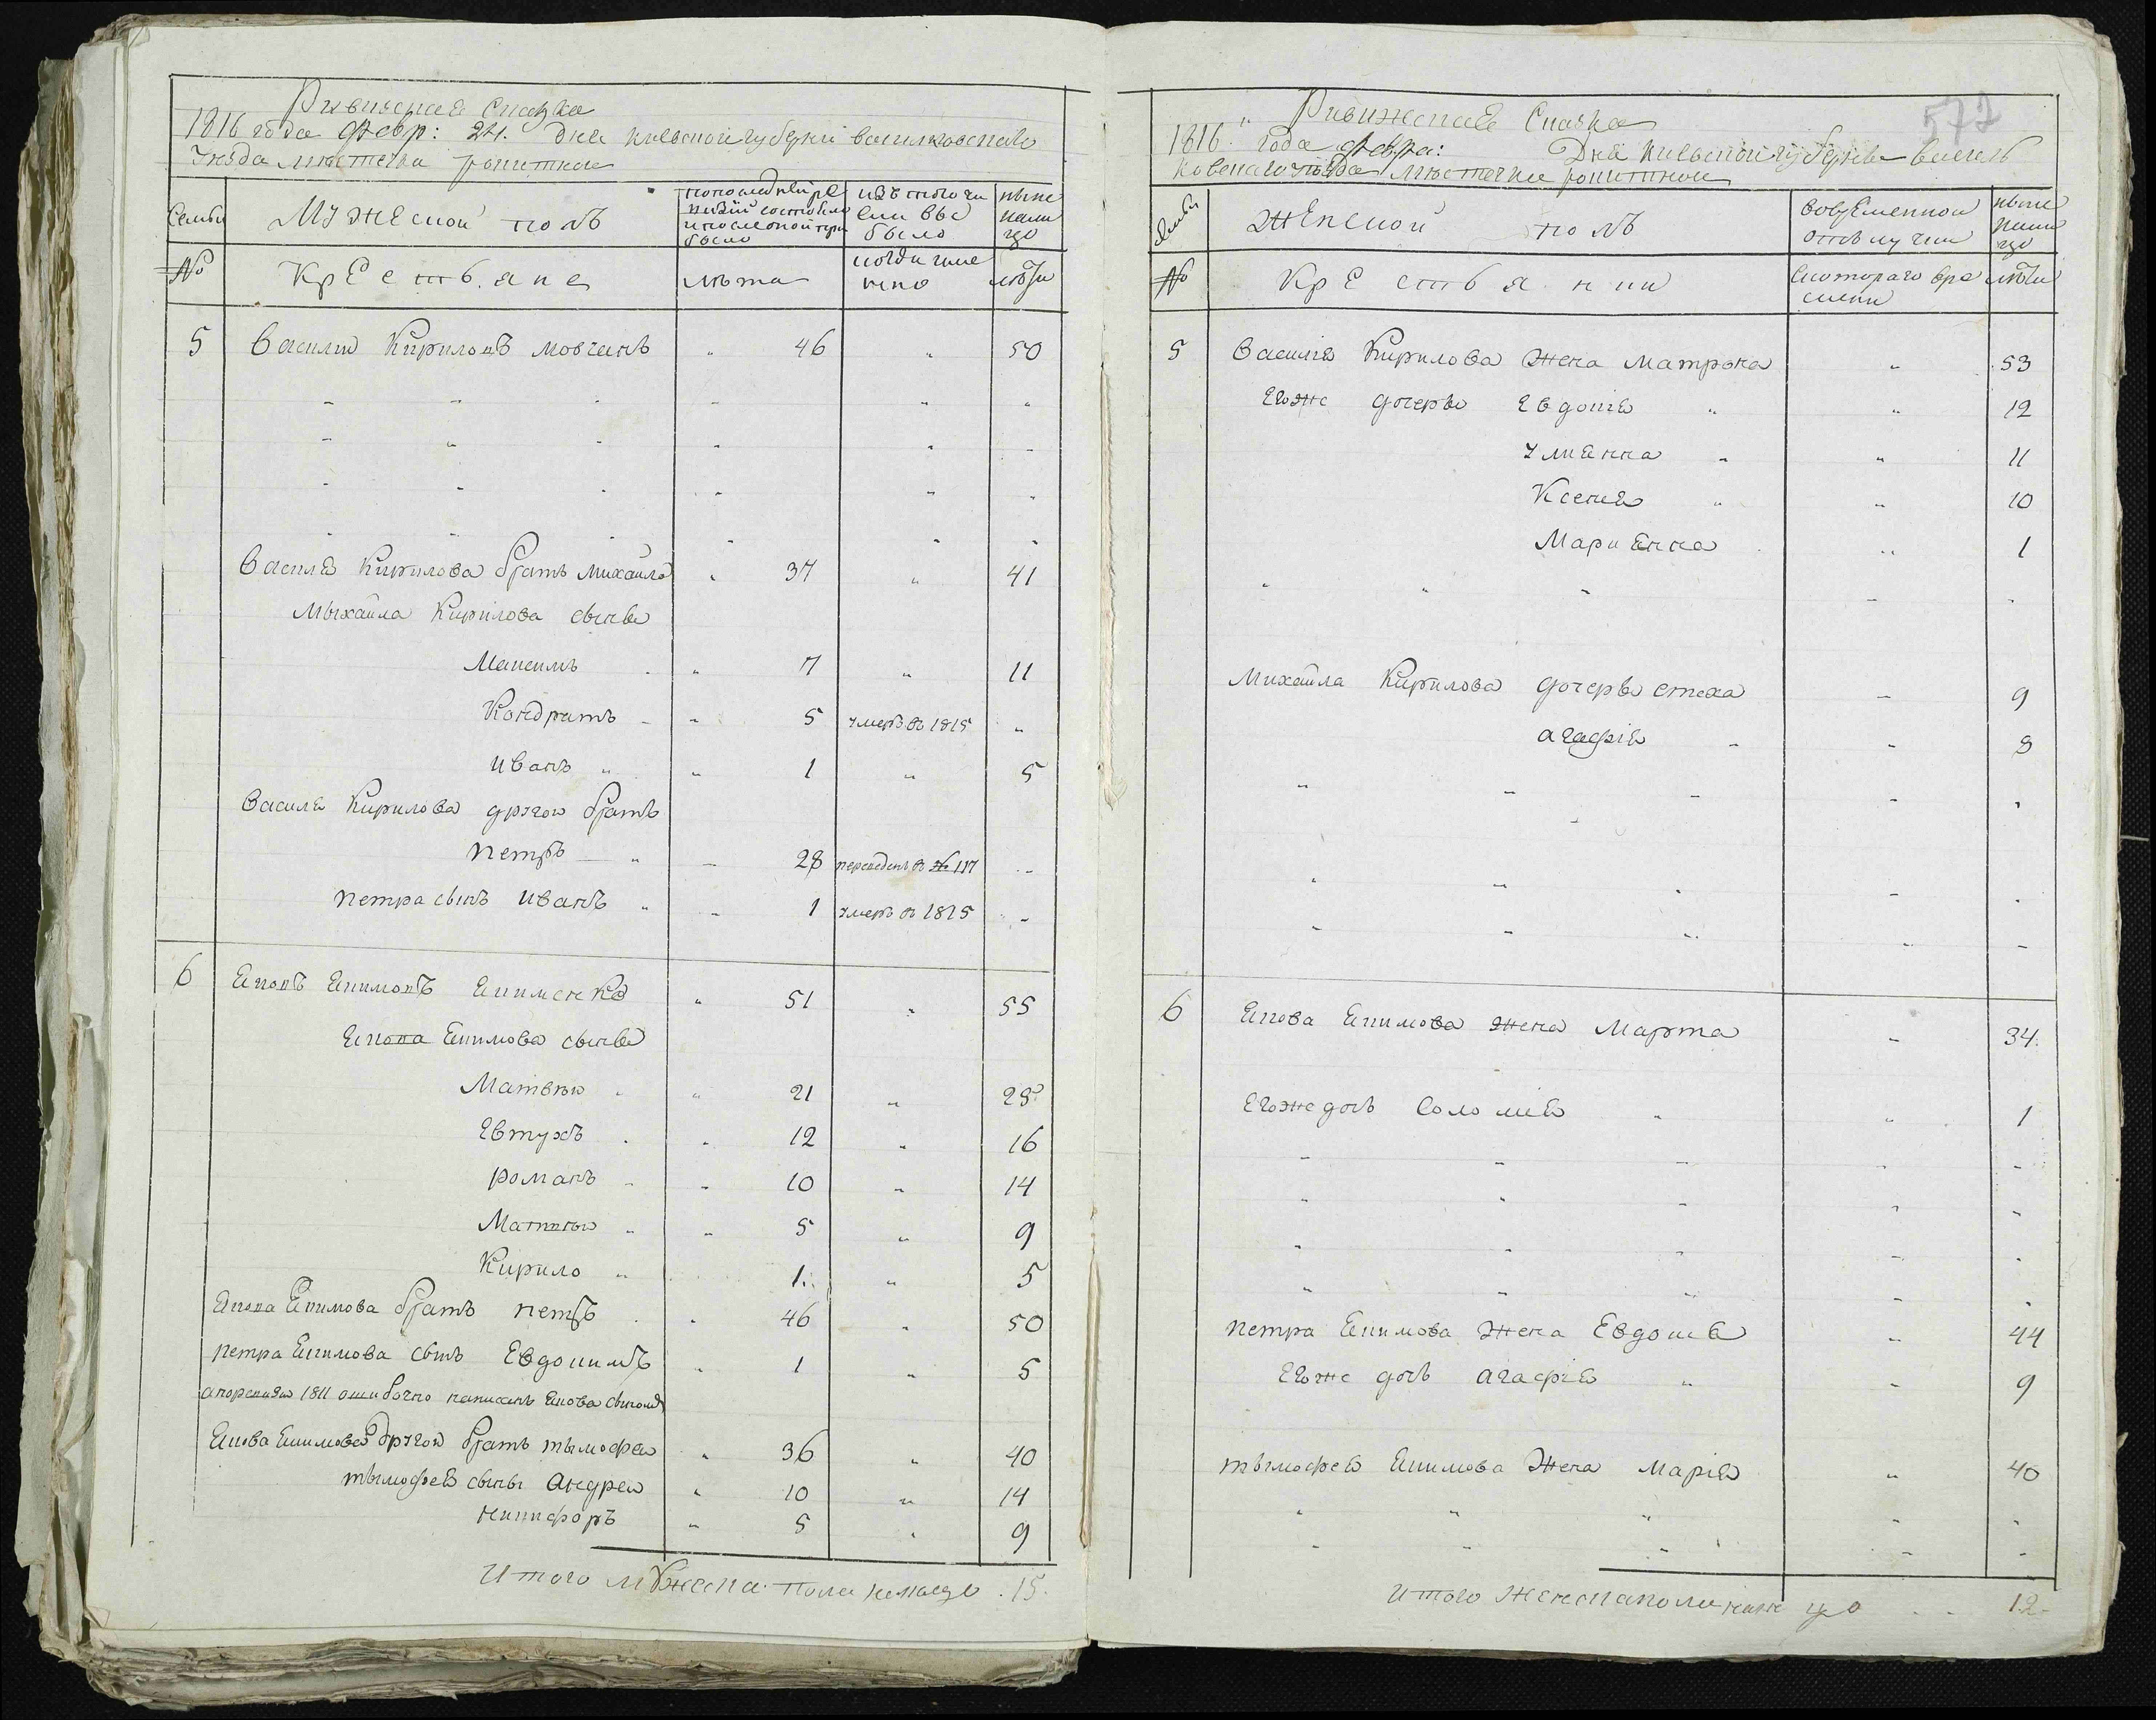 Ривизская Сказка
1816 года Февр: 24. Дня Киевской губернїи василковскаго
уезда местечка рокитной
Семьи
Мужеской полъ
по последней ре
визїи состояло
и после оной при
было
изъ того чи
сла вы
было
ныне
на ли
цо
№
Крестьяне
лета
когда име
нно
лета
5 Василий Кириловъ Мовчанъ " 46 " 50
Василя Кирилова братъ Михайло " 37 " 41
Мыхайла Кирилова сыны
Максимъ " 7 " 11
Кондратъ " 5 умеръ въ 1815 "
Иванъ " " 1 " 5
Василя Кирилова другой братъ
Петръ " 28 переведенъ в № 117 "
Петра сынъ Иванъ " " 1 умеръ въ 1815 "
6 Яковъ Якимовъ Якименко " 51 " 55
Якова Якимова сыны
Матвей " 21 " 25
Евтухъ " 12 " 16
Романъ " 10 " 14
Матвей " 5 " 9
Кирило " 1 " 5
Якова Якимова братъ Петръ " 46 " 50
Петра Якимова сынъ Евдокимъ " 1 " 5
а по ревизїи 1811 ошибочно написанъ Якова сыномъ
Якова Якимова другой братъ тымофей " 36 " 40
тымофея сыны Андрей " 10 " 14
Никифоръ " 5 " 9
Итого мужеска пола налицо 15.
577
Ривижская Сказка
1816 года февра: Дня Киевской губернїи васил
ковскаго уезда местечка рокитной
Семьи
Женской полъ
во временной
отлучки
ныне
нали
цо
№
Крестьянки
с котораго вре
мени
лета
5 Василя Кирилова жена Матрона " 53
Егоже дочери Евдокія " " 12
Улиянна " " 11
Ксенія " " 10
Мариянна " 1
Михайла Кирилова дочери стеха " 9
агафія " " 8
6 Якова Якимова жена Марта " 34.
Егоже дочь Соломія " " 1
Петра Якимова жена Евдокія " 44
Егоже дочь агафія " " 9
тымофея Якимова жена Марія " 40
Итого женска пола налицо 12